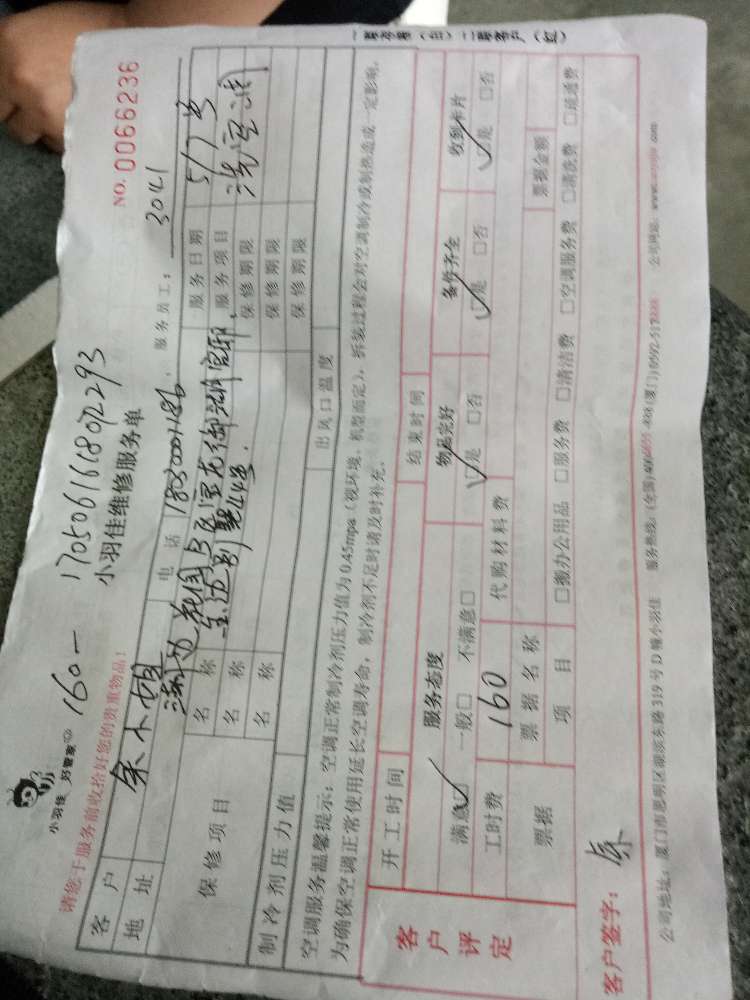 一联存根（白）二联客户（红）
小羽佳 好管家
160一 17050616180 2293
小羽佳维修服务单
NO. 0066236
请您于服务前收拾好您的贵重物品！
服务员工： 3041
客户 余小姐 电话 18030007186 服务日期 5/7号
地址 服务项目 洗空调
保修项目 名称 保修期限
名称 保修期限
名称 保修期限
制冷剂压力值 出风口温度
空调服务温馨提示：空调正常制冷剂压力值为0.45mpa（视环境、机型而定），拆装过程会对空调制冷或制热造成一定影响，
为确保空调正常使用延长空调寿命，制冷剂不足时请及时补充。
客户评定
开工时间 结束时间
服务态度 物品完好 备件齐全 收到卡片
满意☑ 一般□ 不满意□ ☑是 □否 ☑是 □否 ☑是 □否
工时费 160 代购材料费
票据 票据名称 票据金额
项目 □搬办公用品 □服务费 □清洁费 □空调服务费 □清洗费 □疏通费
客户签字： 余
公司地址：厦门市思明区湖滨东路319号D幢小羽佳 服务热线：(全国)400 (厦门)0592-517 公司网站：www. .com